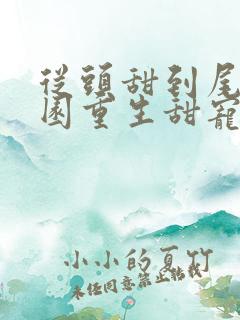 從頭甜到尾
園重生甜寵
小小的夏竹
未經同意禁止轉載